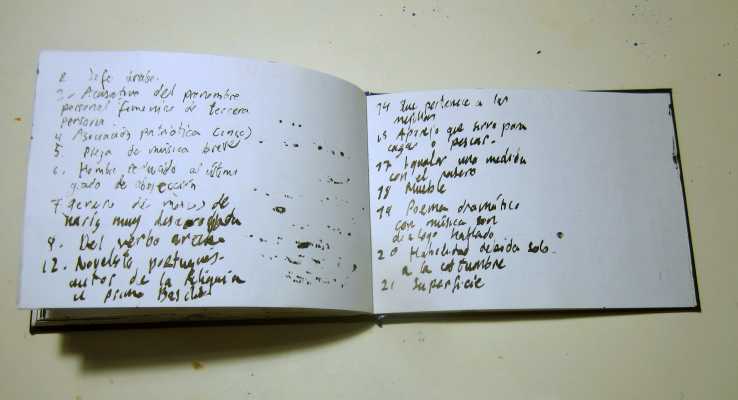 2. Jefe árabe.
3. Acusativo del pronombre
personal femenino de tercera
persona.
4. Asociación patriótica (inic)
5. Pieza de música breve
6. Hombre reducido al último
grado de abyección
7 género de monos de
nariz muy desarrollada
9. Del verbo
12. Novelista portugués
autor de la Reliquia
el primo Basilio
14 Que pertenece a las
medulas
15 Aparejo que sirve para
cazar o pescar.
17 Igualar una medida
con el rasero
18 Mueble
19 Poema dramático
con música son
dialogo hablado
20 Habilidad debida solo
a la costumbre
21 Superficie